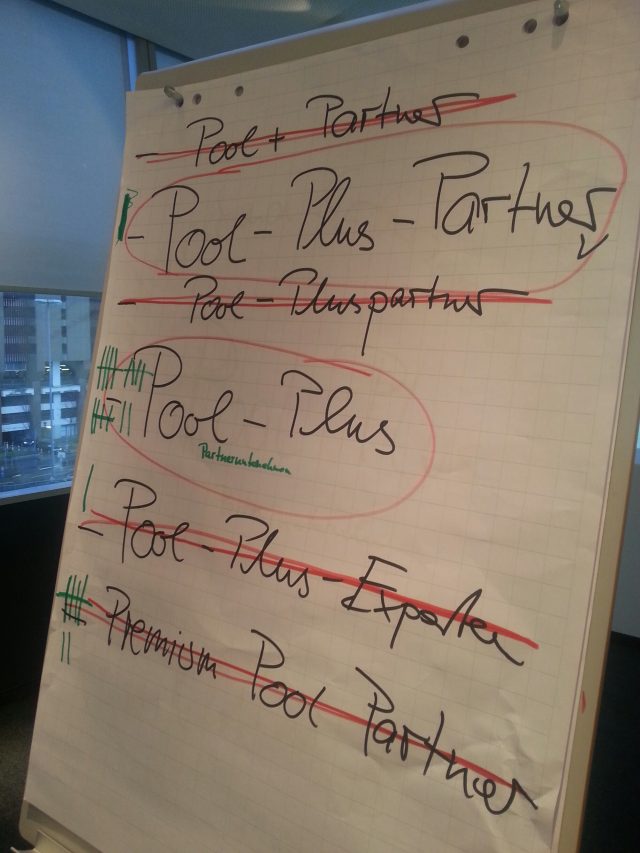 - Pool + Partner
- Pool - Plus - Partner
- Pool - Pluspartner
Pool - Plus
Partnerunternehmen
- Pool - Plus - Experten
Premium Pool Partner